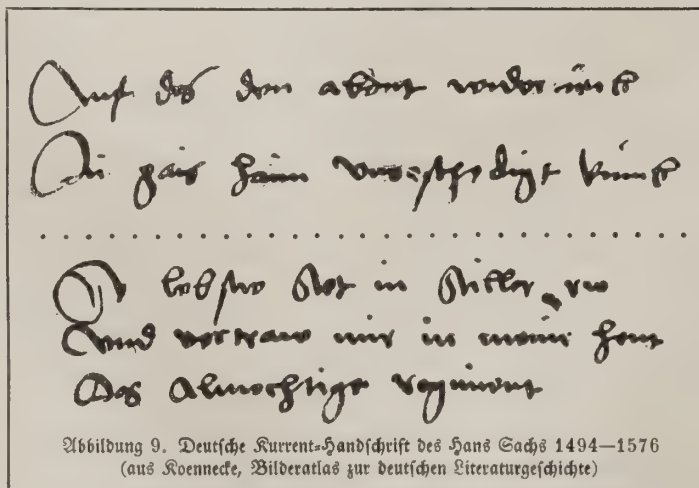 Auf das den abent wider umb
Di gais haim vnbeschedigt kumb
lebstw stet in stiller rw
Vnd vertraw mir in meine hent
Das Almechtige regiment
Abbildung 9. Deutsche Kurrent-Handschrift des Hans Sachs 1494—1576
(aus Koennecke, Bilderatlas zur deutschen Literaturgeschichte)